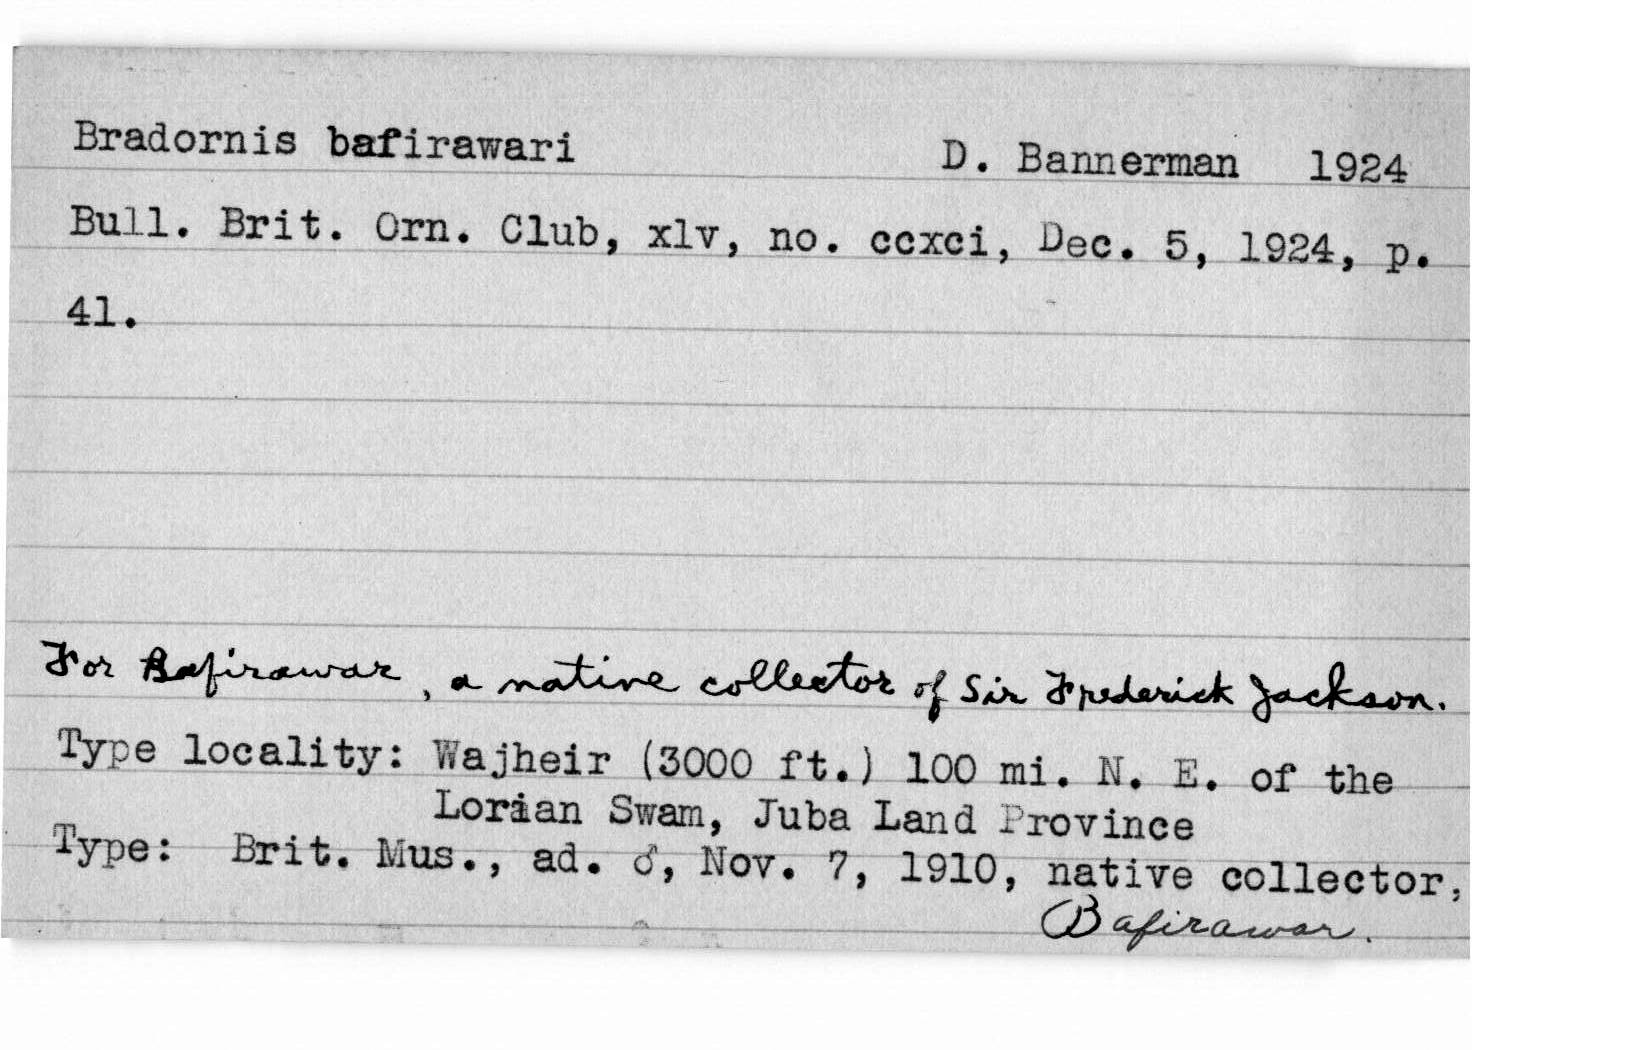 Bradornis bafirawari D. Bannerman 1924
Bull. Brit. Orn. Club, xlv, no. ccxci, Dec. 5, 1924, p.
41.
For Bafirawar, a native collector of Sir Frederick Jackson.
Type locality: Wajheir (3000 ft.) 100 mi. N. E. of the
Lorian Swam, Juba Land Province
Type: Brit. Mus., ad. ♂, Nov. 7, 1910, native collector,
Bafirawar.